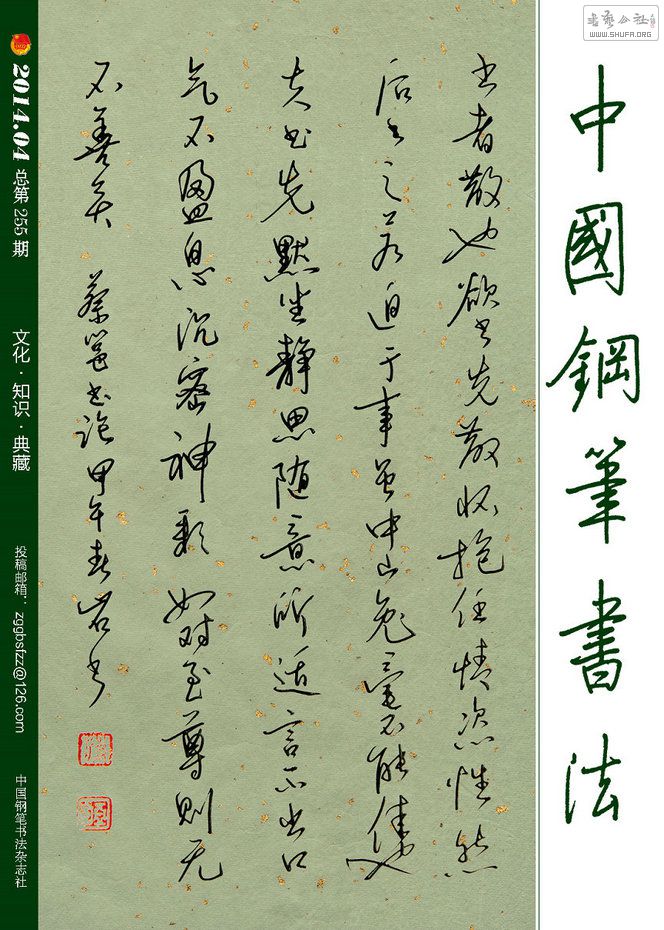 书艺公社
WWW.SHUFA.ORG
中國鋼筆書法
书者散也欲书先散怀抱任情恣性然
后书之若迫于事虽中山兔毫不能佳也
夫书先默坐静思随意所适言不出口
气不盈息沉密神彩如对至尊则无
不善矣 蔡邕书论 甲午春岩书
2014.04 总第255期
文化·知识·典藏
投稿邮箱：zggbsfzz@126.com
中国钢笔书法杂志社